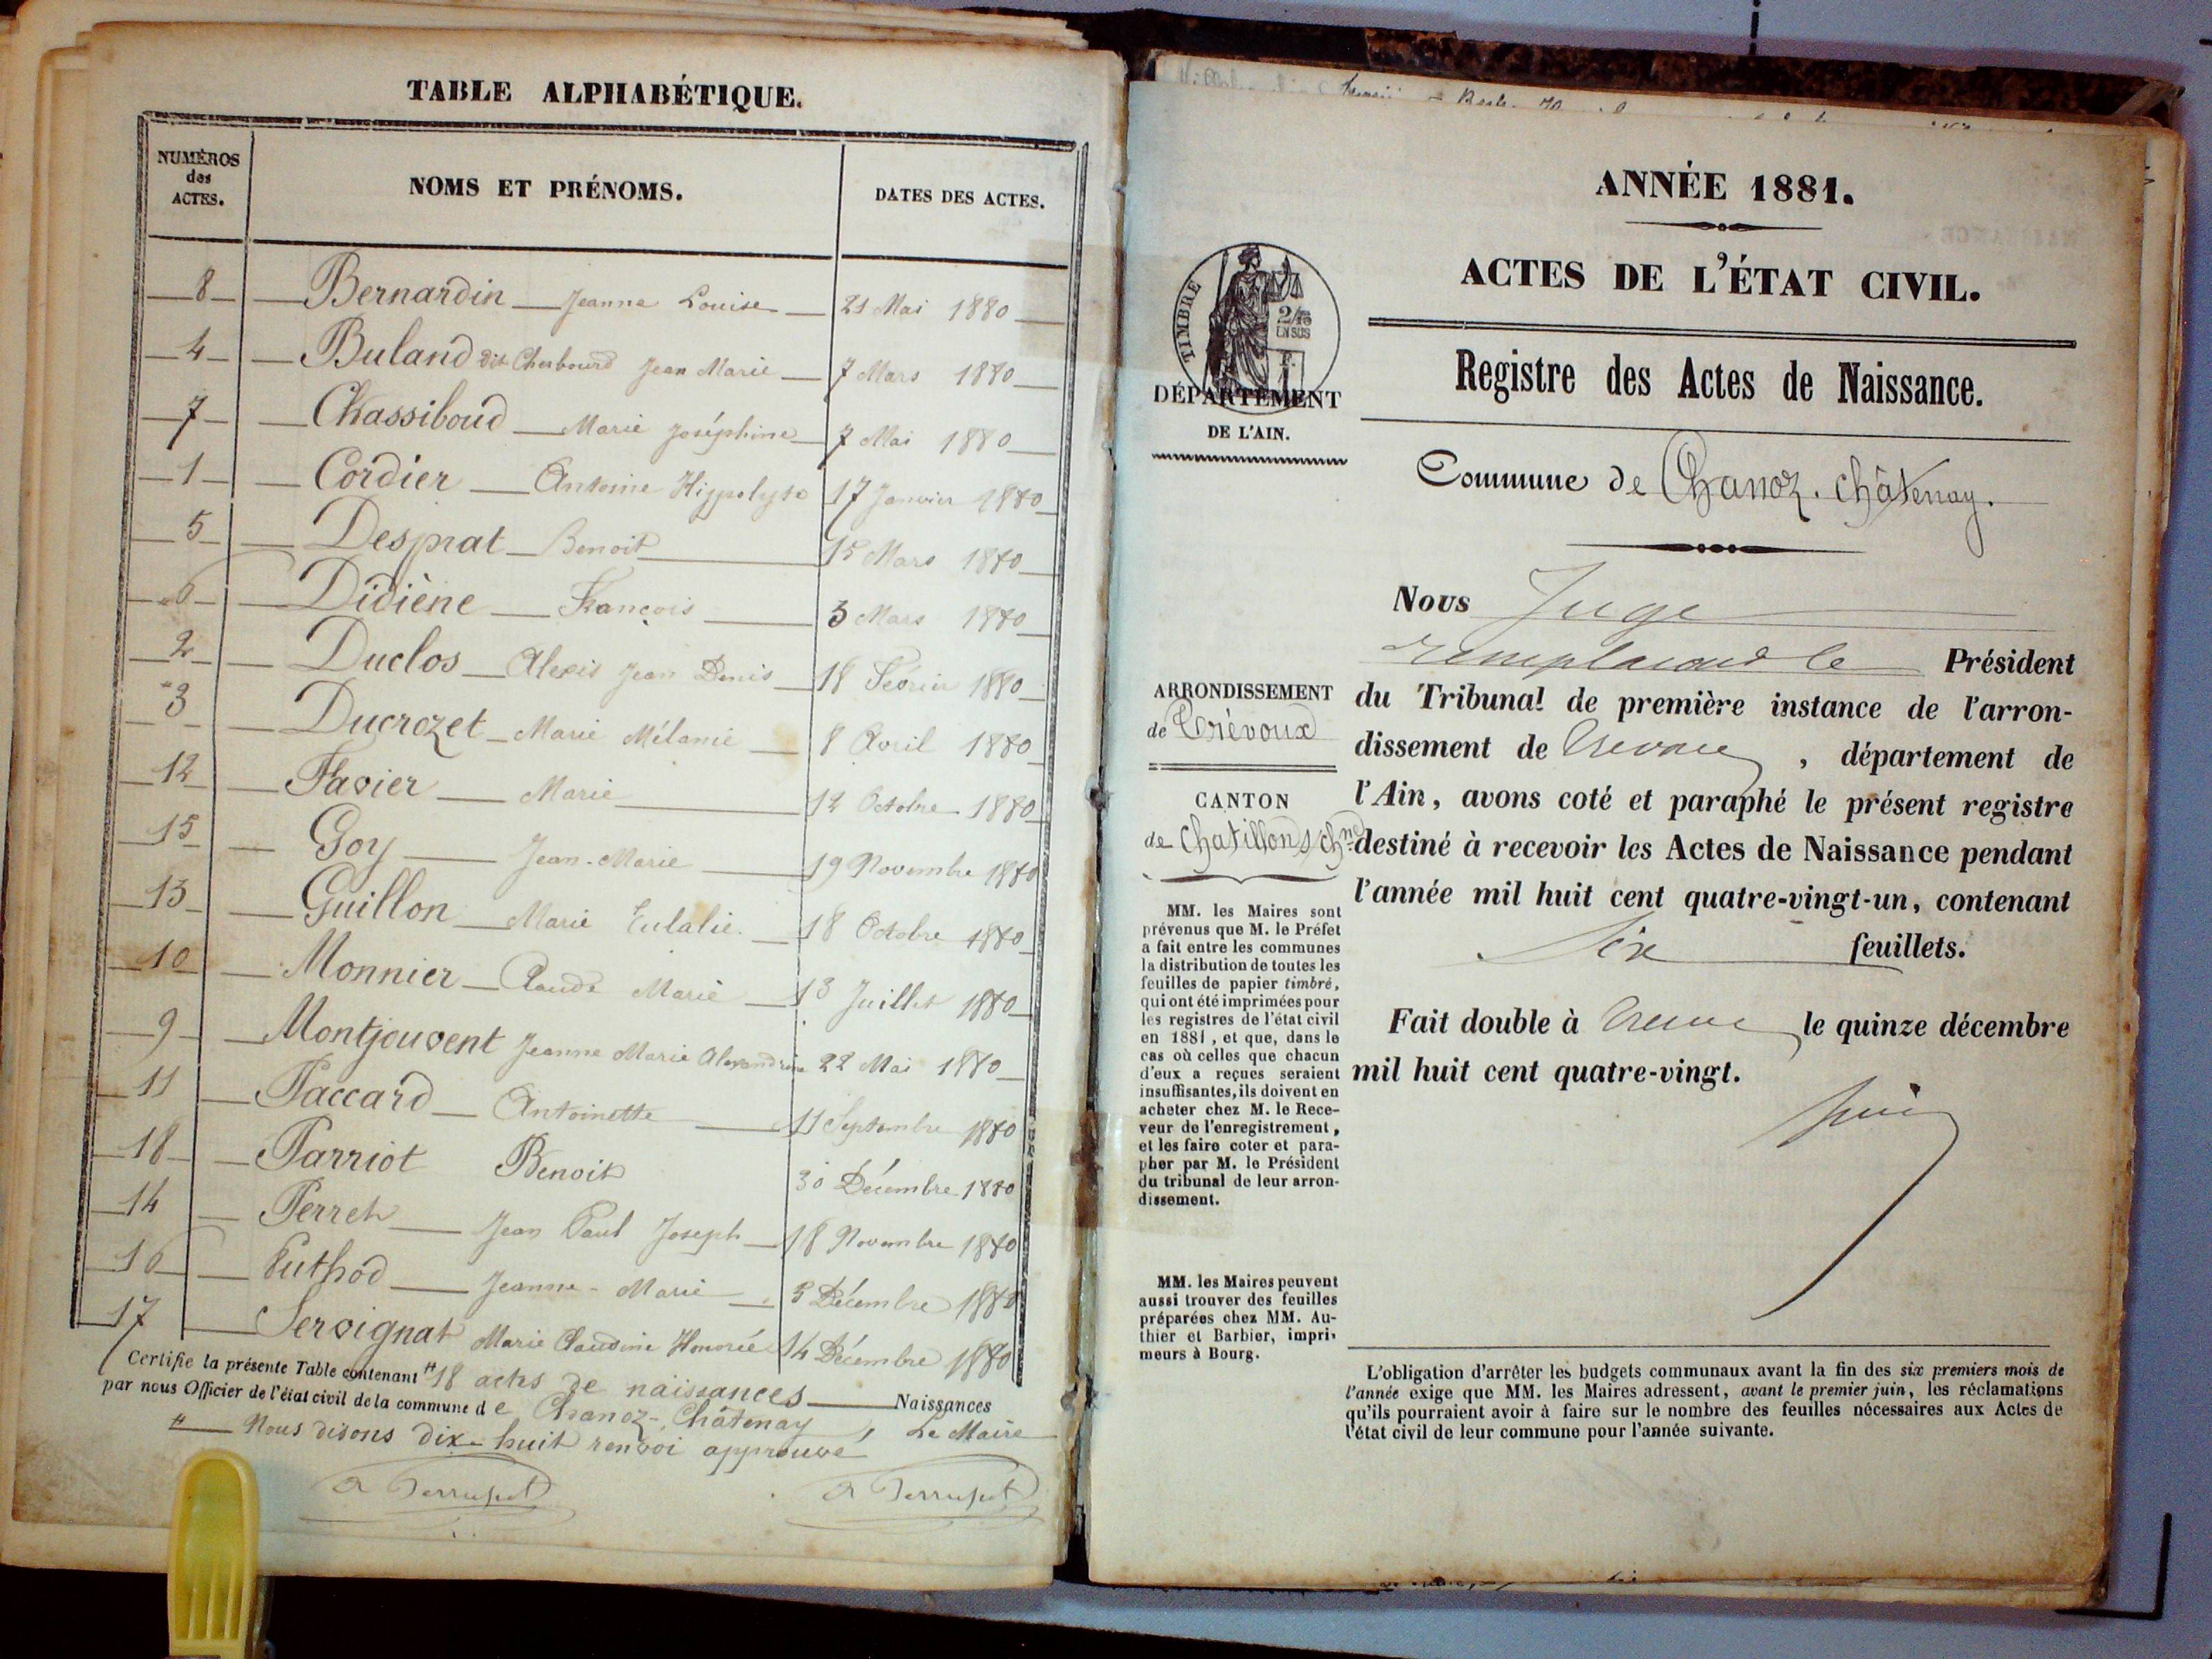 TABLE ALPHABÉTIQUE.
NUMÉROS des ACTES. NOMS ET PRÉNOMS. DATES DES ACTES.
8 Bernardin Jeanne Louise 21 Mai 1880
4 Buland dit Cherbourd Jean Marie 7 Mars 1880
7 Chassiboud Marie Joséphine 7 Mai 1880
1 Cordier Antoine Hippolyte 17 Janvier 1880
5 Desprat Benoit 15 Mars 1880
6 Didiène François 3 Mars 1880
2 Duclos Alexis Jean Denis 18 Février 1880
3 Ducrozet Marie Mélanie 8 Avril 1880
12 Favier Marie 12 Octobre 1880
15 Goy Jean-Marie 19 Novembre 1880
13 Guillon Marie Eulalie 18 Octobre 1880
10 Monnier Claude Marie 13 Juillet 1880
9 Montjouvent Jeanne Marie Alexandrine 22 Mai 1880
11 Paccard Antoinette 11 Septembre 1880
18 Parriot Benoit 30 Décembre 1880
14 Perret Jean Paul Joseph 18 Novembre 1880
16 Puthod Jeanne-Marie 5 Décembre 1880
17 Servignat Marie Claudine Honorée 14 Décembre 1880
Certifie la présente Table contenant # 18 actes de naissances Naissances
par nous Officier de l'état civil de la commune de Chanoz-Châtenay, Le Maire
# Nous disons dix-huit renvoi approuvé
ANNÉE 1881.
ACTES DE L'ÉTAT CIVIL.
TIMBRE
2/10
EN SUS
DÉPARTEMENT
DE L'AIN.
Registre des Actes de Naissance.
Commune de Chanoz-Châtenay.
ARRONDISSEMENT
de Trévoux
CANTON
de Chatillon s/ Ch.ne
MM. les Maires sont
prévenus que M. le Préfet
a fait entre les communes
la distribution de toutes les
feuilles de papier timbré,
qui ont été imprimées pour
les registres de l'état civil
en 1881, et que, dans le
cas où celles que chacun
d'eux a reçues seraient
insuffisantes, ils doivent en
acheter chez M. le Rece-
veur de l'enregistrement,
et les faire coter et para-
pher par M. le Président
du tribunal de leur arron-
dissement.
MM. les Maires peuvent
aussi trouver des feuilles
préparées chez MM. Au-
thier et Barbier, impri-
meurs à Bourg.
Nous Juge
remplacant le Président
du Tribunal de première instance de l'arron-
dissement de Trevoux, département de
l'Ain, avons coté et paraphé le présent registre
destiné à recevoir les Actes de Naissance pendant
l'année mil huit cent quatre-vingt-un, contenant
Six feuillets.
Fait double à Trevoux le quinze décembre
mil huit cent quatre-vingt.
L'obligation d'arrêter les budgets communaux avant la fin des six premiers mois de
l'année exige que MM. les Maires adressent, avant le premier juin, les réclamations
qu'ils pourraient avoir à faire sur le nombre des feuilles nécessaires aux Actes de
l'état civil de leur commune pour l'année suivante.